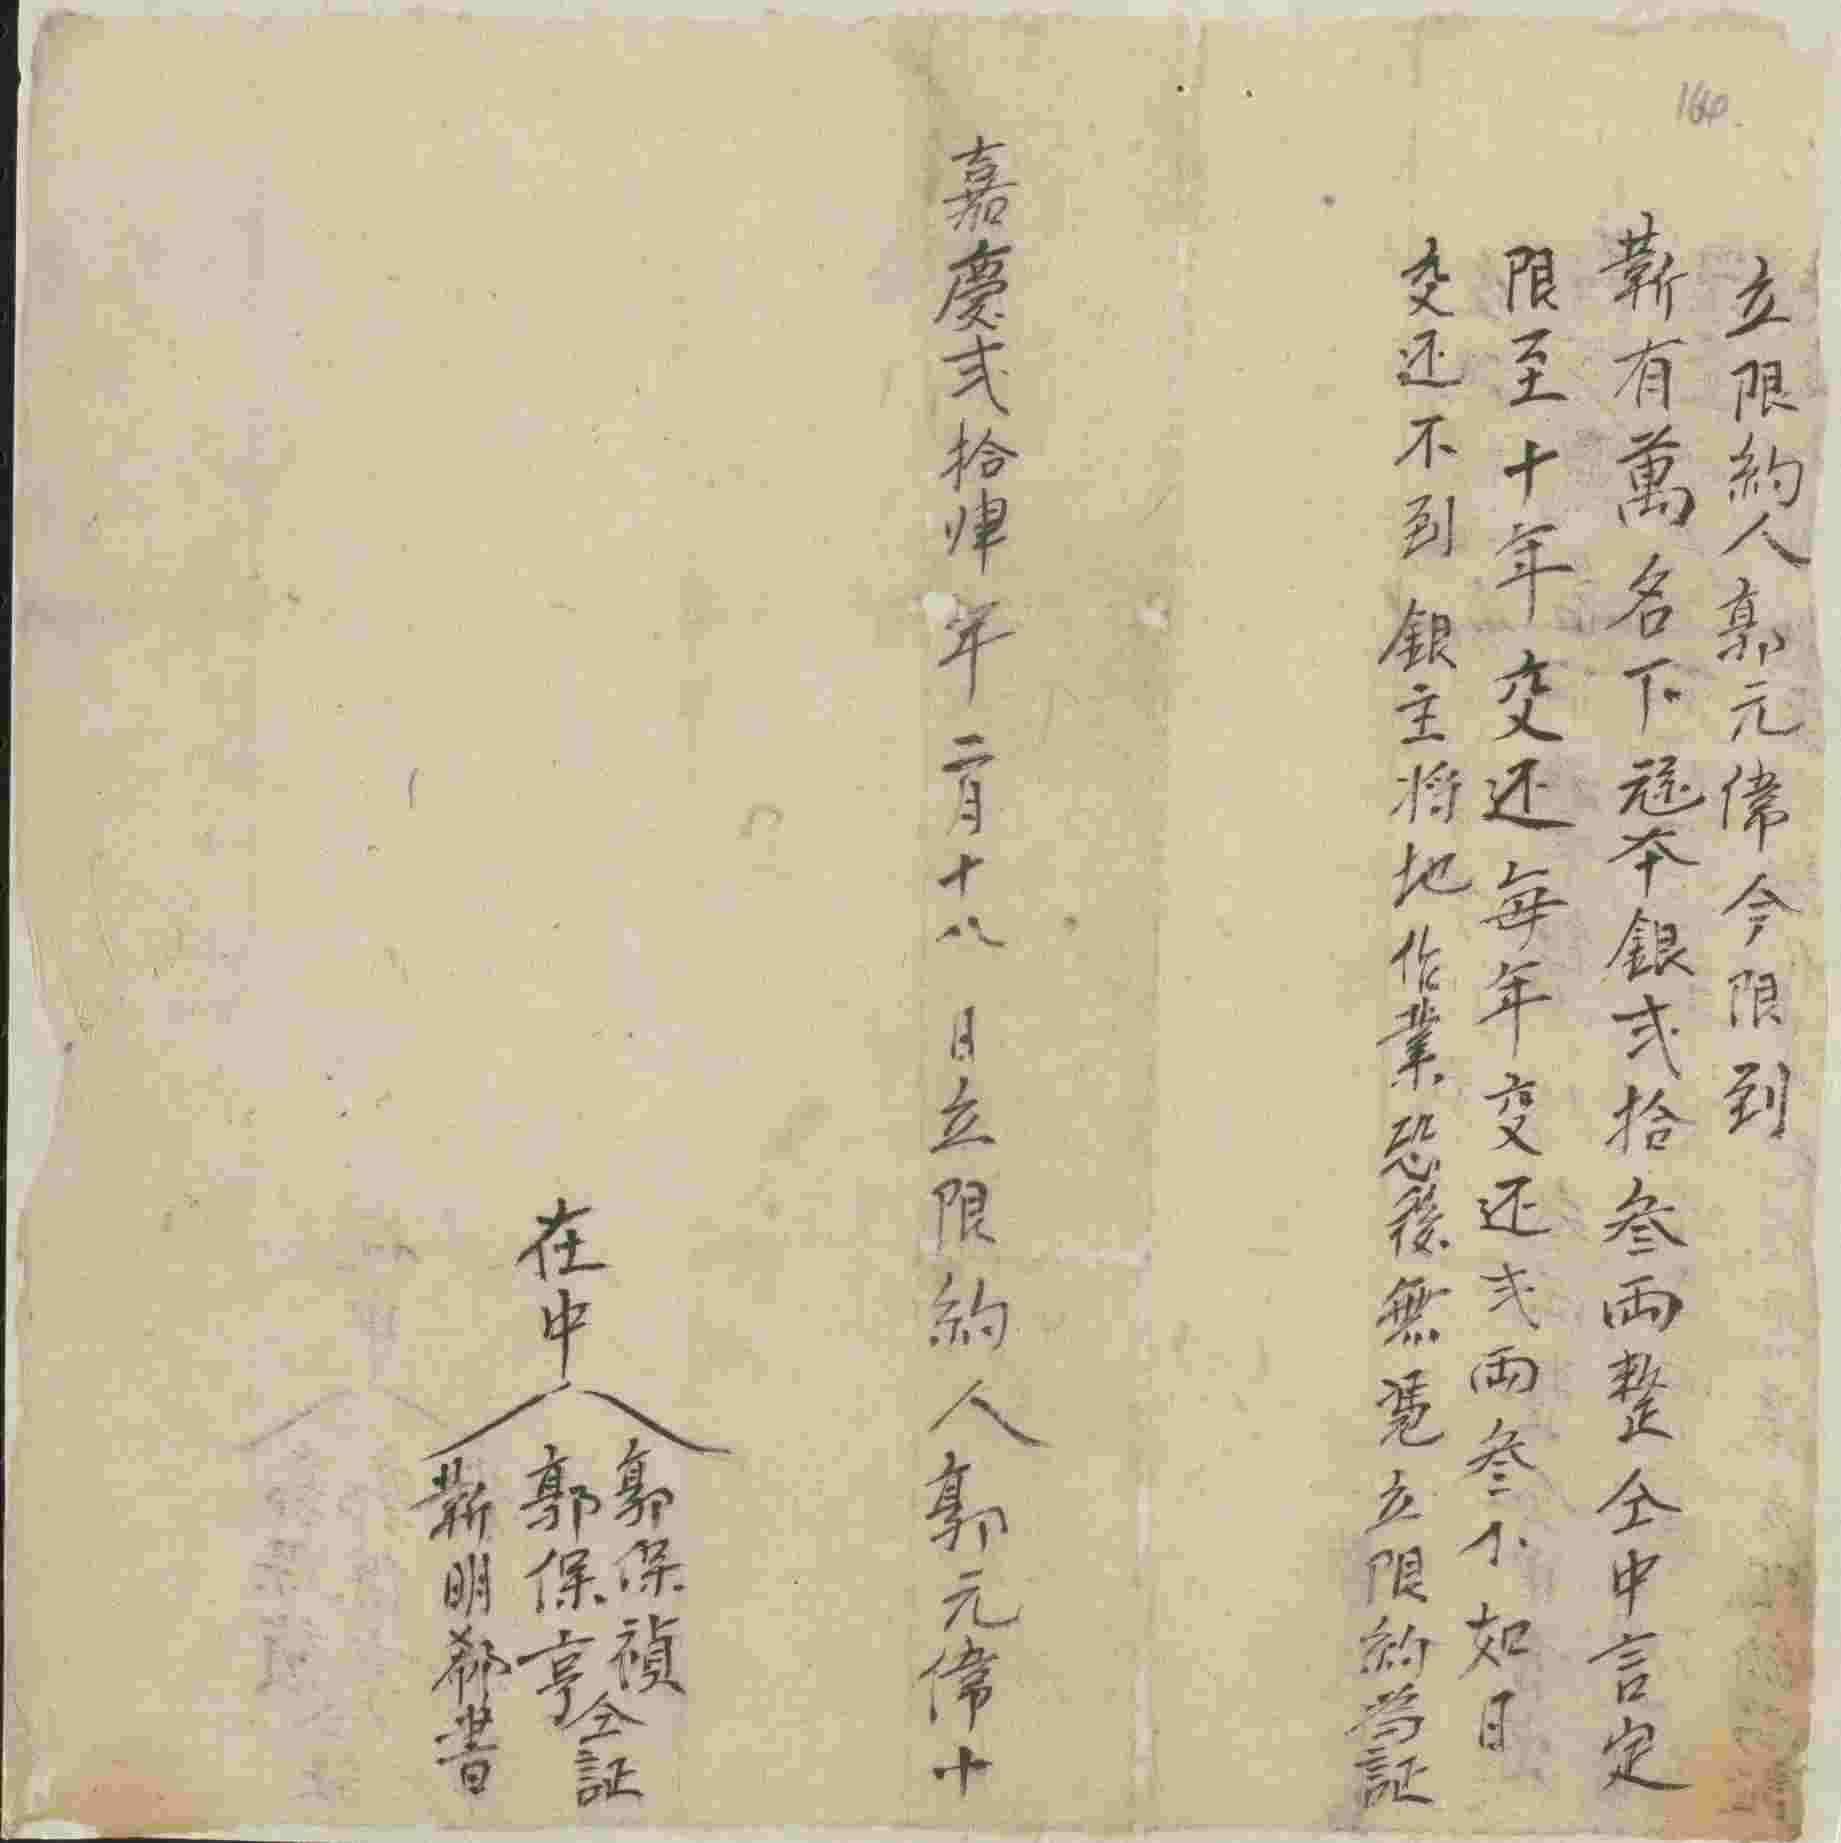 164
立限約人郭元偉今限到
靳有萬名下冦本銀弍拾叁兩整仝中言定
限至十年交还每年交还弍兩叁不如日
交还不到銀主将地作業恐後無凴立限約為証
嘉慶弍拾肆年二月十八日立限約人郭元偉十
在中
郭保禎
郭保亨
仝証
靳明郗書